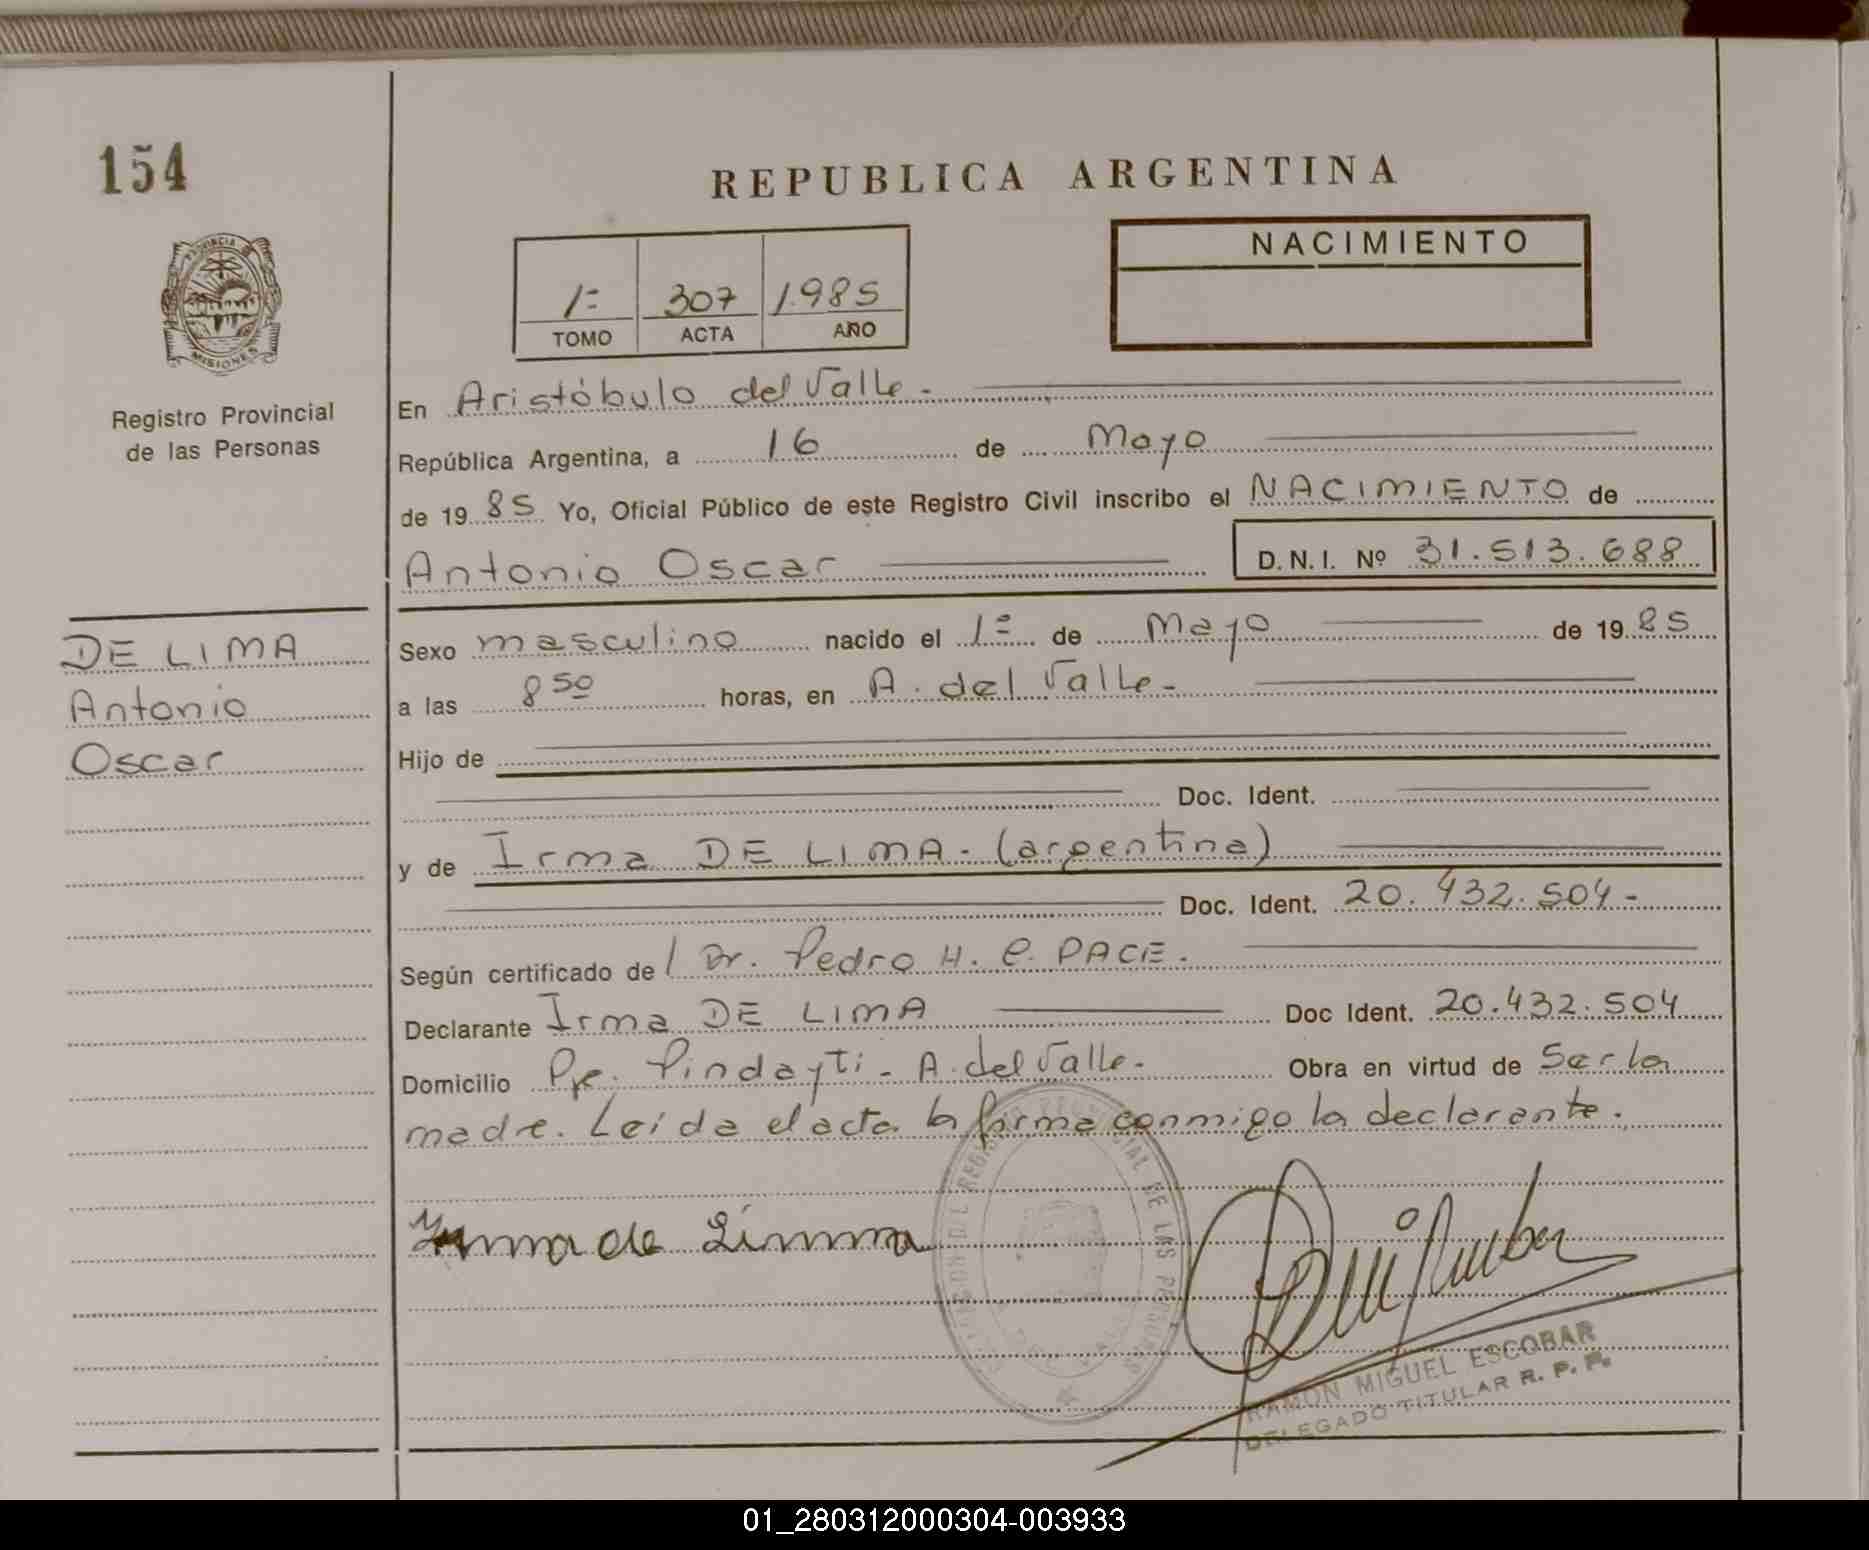 154
REPUBLICA ARGENTINA
PROVINCIA DE
MISIONES
Registro Provincial
de las Personas
1= 307 1.985
TOMO ACTA AÑO
NACIMIENTO
En Aristóbulo del Valle.-
República Argentina, a 16 de Mayo
de 19 85 Yo, Oficial Público de este Registro Civil inscribo el NACIMIENTO de
Antonio Oscar D.N.I. Nº 31.513.688
DE LIMA
Antonio
Oscar
Sexo masculino nacido el 1= de Mayo de 19 85
a las 8 50 horas, en A. del Valle.-
Hijo de
Doc. Ident.
y de Irma DE LIMA.- (argentina)
Doc. Ident. 20.432.504.-
Según certificado de Dr. Pedro H. C. PACE.
Declarante Irma DE LIMA Doc Ident. 20.432.504
Domicilio Pje. Pindayti - A. del Valle.- Obra en virtud de Ser la
madre. Leída el acta la firma conmigo la declarante.
Irma de Limma
REGISTRO PROVINCIAL DE LAS PERSONAS
RAMON MIGUEL ESCOBAR
DELEGADO TITULAR R. P. P.
01_280312000304-003933